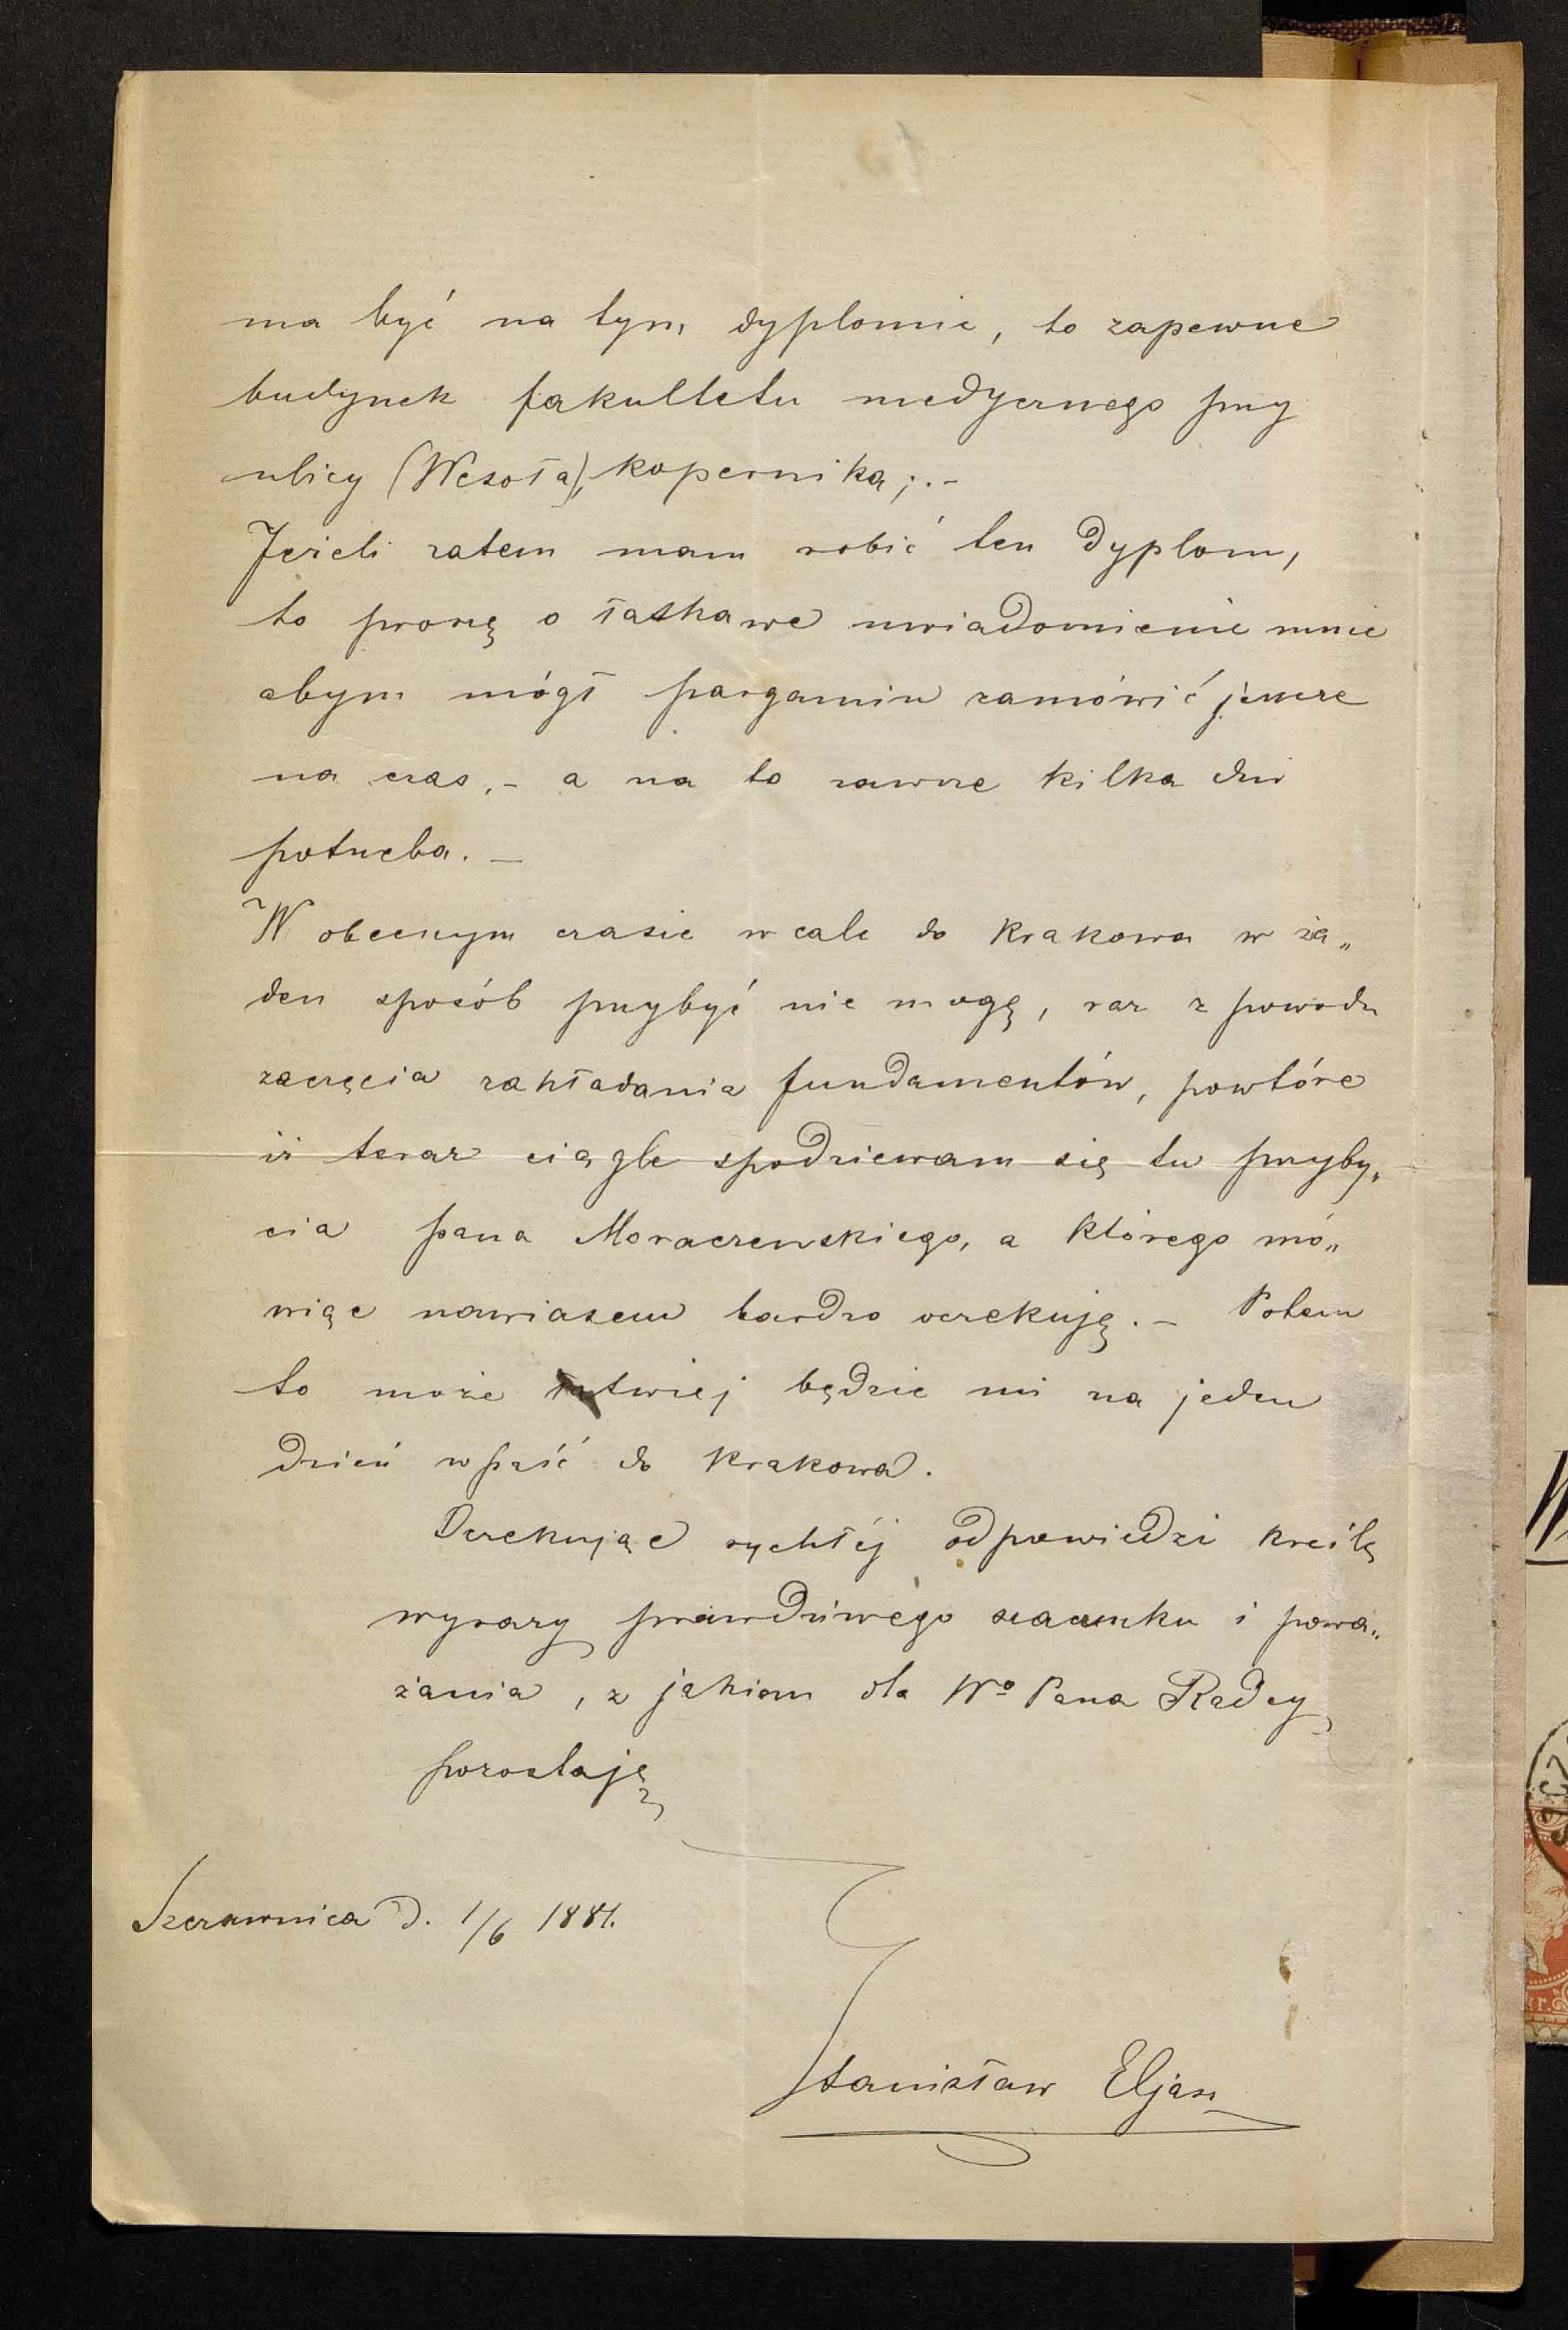 ma być na tym dyplomie, to zapewne
budynek fakultetu medycznego przy
ulicy (Wesoła), Kopernika; .-
Jeżeli zatem mam robić ten dyplom,
to proszę o łaskawe uwiadomienie mnie
abym mógł pargamin zamówić jeszcze
na czas, - a na to zawsze kilka dni
potrzeba. -
W obecnym czasie wcale do Krakowa w ża„
den sposób przybyć nie mogę, raz z powodu
zaczęcia zakładania fundamentów, powtóre
iż teraz ciągle spodziewam się tu przyby„
cia pana Moraczewskiego, a którego mó„
wiąc nawiasem bardzo oczekuję. - Potem
to może łatwiej będzie mi na jeden
dzień wpaść do Krakowa.
Oczekując rychłéj odpowiedzi kreślę
wyrazy prawdziwego szacunku i powa„
żania, z jakiem dla Wº Pana Radcy
pozostaję
Szczawnica d. 1/6 1881.
Stanisław Eljasz